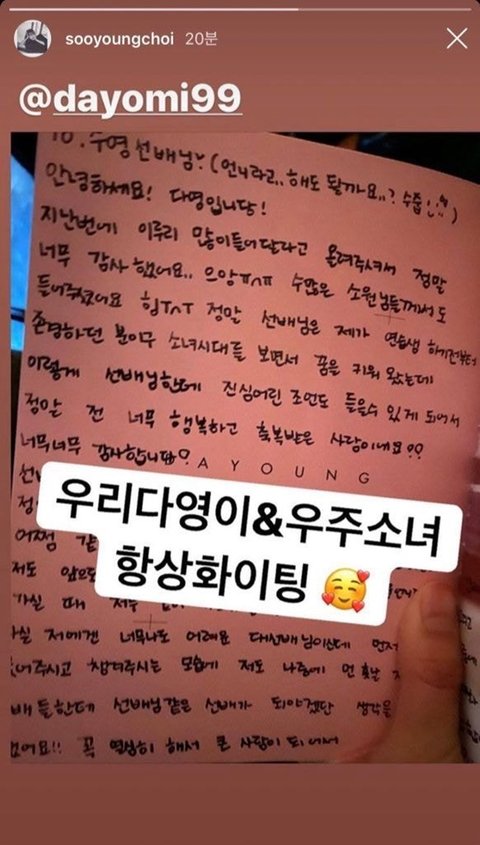 sooyoungchoi 20분
@dayomi99
To. 수영선배님♡ (언니라고.. 해도 될까요..? 수줍
안녕하세요! 다영입니당!
지난번에 이루리 많이들어달라고 올려주셔서 정말
너무 감사했어요.. 으앙ㅠㅅㅠ 수많은 소원님들께서도
들어주셨어요 힝TㅅT 정말 선배님은 제가 연습생 하기전부터
존경하던 분이구 소녀시대를 보면서 꿈을 키워 왔는데
이렇게 선배님한테 진심어린 조언도 들을수 있게 되어서
정말 전 너무 행복하고 축복받은 사람이네요??
너무너무 감사합니당?
A Y O U N G
우리다영이&우주소녀
항상화이팅 🥰
어쩜
저도 앞으로
가실 때
저에겐 너무나도 어려운 대선배님이신데 먼저
주시고 챙겨주시는 모습에 저도 나중에 먼 훗날
배들한테 선배님같은 선배가 되야겠단 생각을
했어요!! 꼭 열심히 해서 큰 사람이 되어서